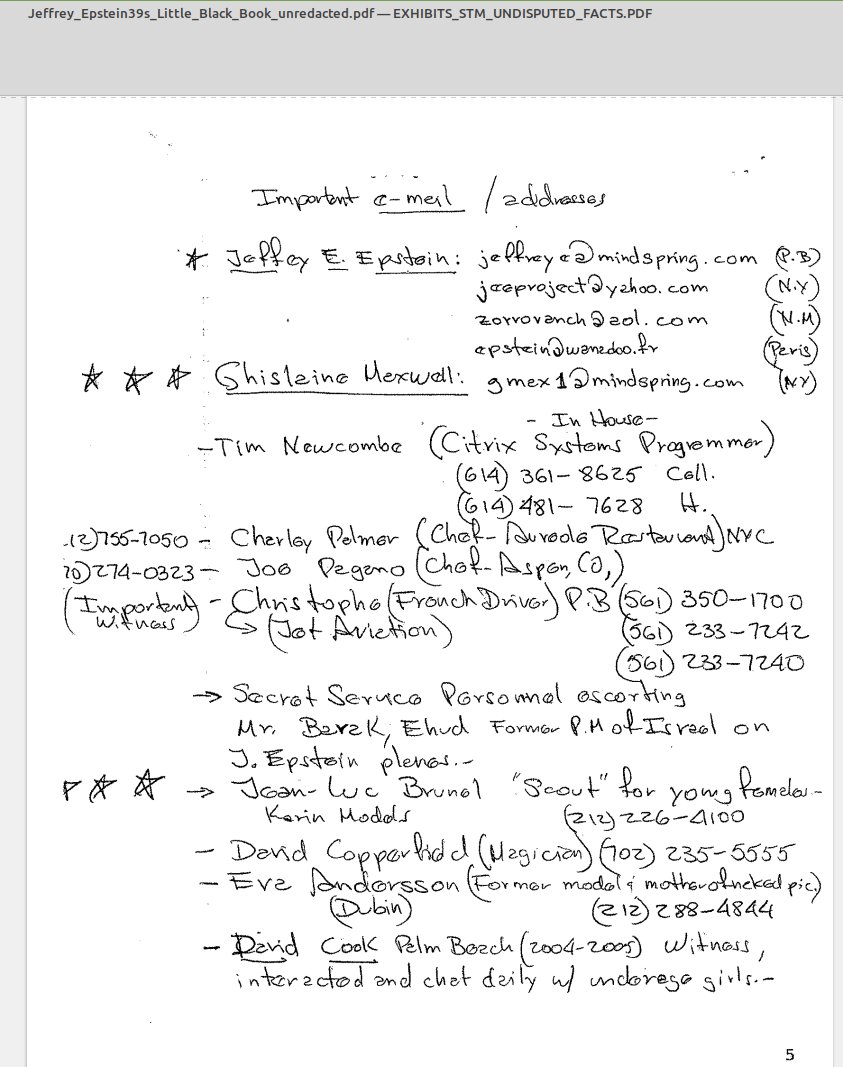 Jeffrey_Epstein39s_Little_Black_Book_unredacted.pdf — EXHIBITS_STM_UNDISPUTED_FACTS.PDF
Important e-mail / addresses
★ Jeffrey E. Epstein: jeffreye@mindspring.com (P.B)
jeeproject@yahoo.com (N.Y)
zorroranch@aol.com (N.M)
epstein@wanadoo.fr (Paris)
★ ★ ★ Ghislaine Maxwell: gmax1@mindspring.com (NY)
- In House -
- Tim Newcombe (Citrix Systems Programmer)
(614) 361-8625 Cell.
(614) 481-7628 H.
12)755-7050 - Charley Palmer (Chef - Aureole Restaurant) NYC
70)274-0323 - Joe Pagano (Chef - Aspen, CO,)
(Important Witness) - Christophe (French Driver) P.B (561) 350-1700
(Jet Aviation) (561) 233-7242
(561) 233-7240
→ Secret Service Personnal escorting
Mr. Barak, Ehud Former P.M of Israel on
J. Epstein planes.-
★ ★ ★ → Jean-Luc Brunel "Scout" for young females-
Karin Models (212) 226-4100
- David Copperfield (Magician) (702) 235-5555
- Eva Andersson (Former model & mother of naked pic.)
(Dubin) (212) 288-4844
- David Cook Palm Beach (2004-2005) Witness,
interacted and chat daily w/ underage girls.-
5